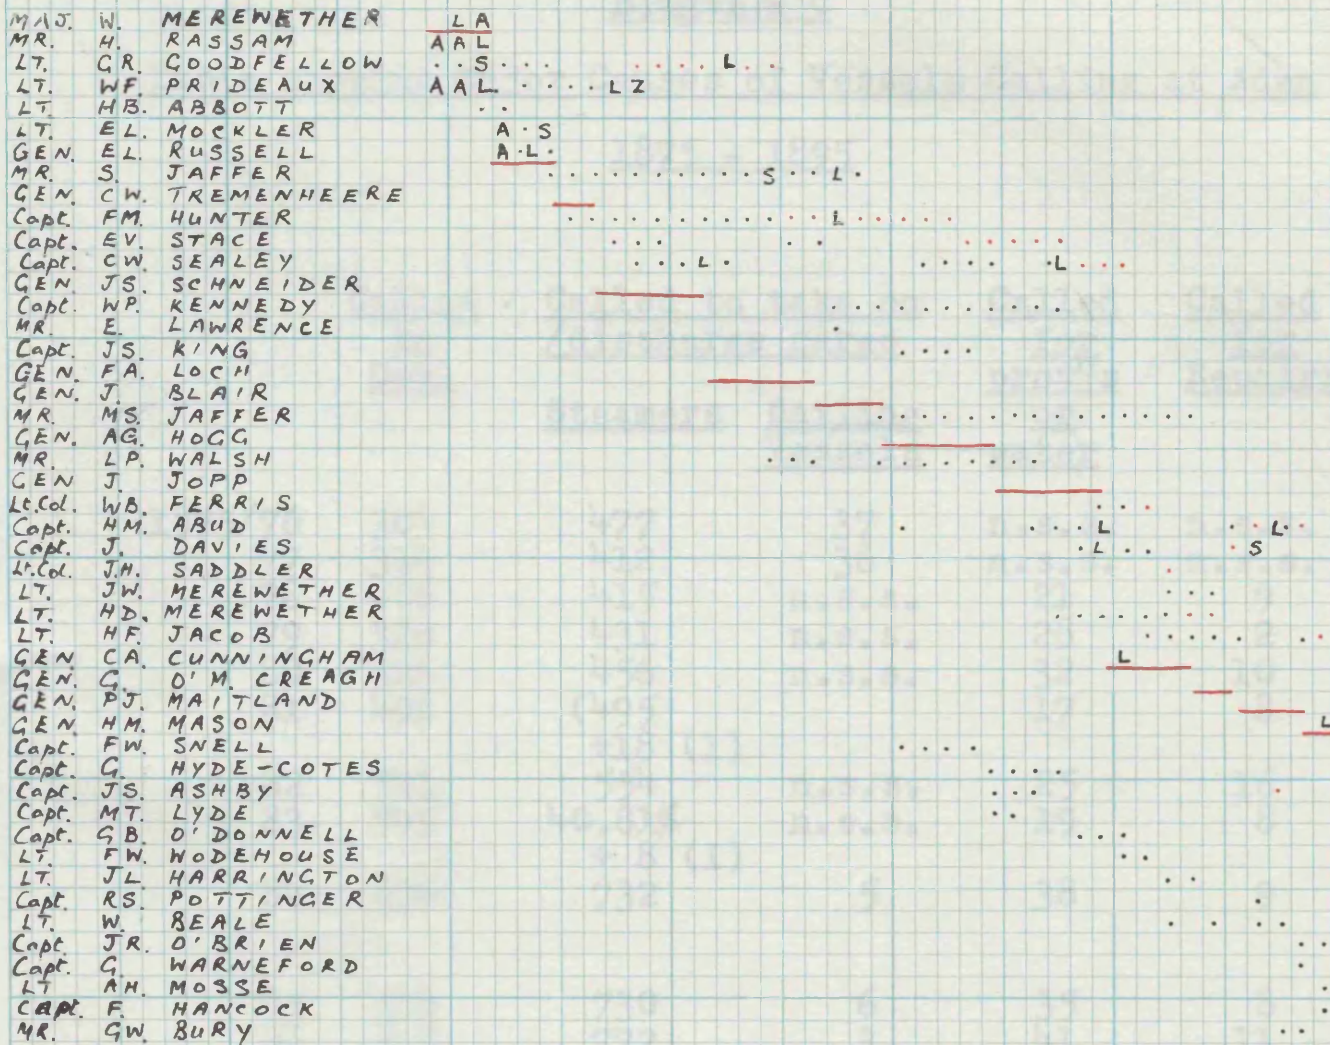 MAJ. W. MEREWETHER L A
MR. H. RASSAM A A L
LT. GR. GOODFELLOW . . S . . . . . . . L . .
LT. WF. PRIDEAUX A A L . . . . . L Z
LT. HB. ABBOTT . .
LT. EL. MOCKLER A . S
GEN. EL. RUSSELL A . L .
MR. S. JAFFER . . . . . . . . . . S . . L .
GEN. CW. TREMENHEERE
Capt. FM. HUNTER . . . . . . . . . . . . L . . . . .
Capt. EV. STACE . . . . . . . . . .
Capt. CW. SEALEY . . . L . . . . . . L . . .
GEN. JS. SCHNEIDER
Capt. WP. KENNEDY . . . . . . . . . . .
MR. E. LAWRENCE .
Capt. JS. KING . . . .
GEN. FA. LOCH
GEN. J. BLAIR
MR. MS. JAFFER . . . . . . . . . . . . . . .
GEN. AG. HOGG
MR. LP. WALSH . . . . . . . . . . .
GEN J. JOPP
Lt.Col. WB. FERRIS . . .
Capt. HM. ABUD . . . . L . . L . .
Capt. J. DAVIES . L . . . S
Lt.Col. J.H. SADDLER .
LT. JW. MEREWETHER . . .
LT. HD. MEREWETHER . . . . . . . .
LT. HF. JACOB . . . . . . .
GEN CA. CUNNINGHAM L
GEN. G. O'M. CREAGH
GEN. PJ. MAITLAND
GEN. HM. MASON L
Capt. FW. SNELL . . . .
Capt. G. HYDE-COTES . . . .
Capt. JS. ASHBY . . . .
Capt. MT. LYDE . .
Capt. GB. O'DONNELL . . .
LT. FW. WODEHOUSE . .
LT. JL. HARRINGTON . .
Capt. RS. POTTINGER .
LT. W. BEALE . . . .
Capt. JR. O'BRIEN . .
Capt. G. WARNEFORD .
LT AH. MOSSE .
Capt. F. HANCOCK .
MR. GW. BURY . .